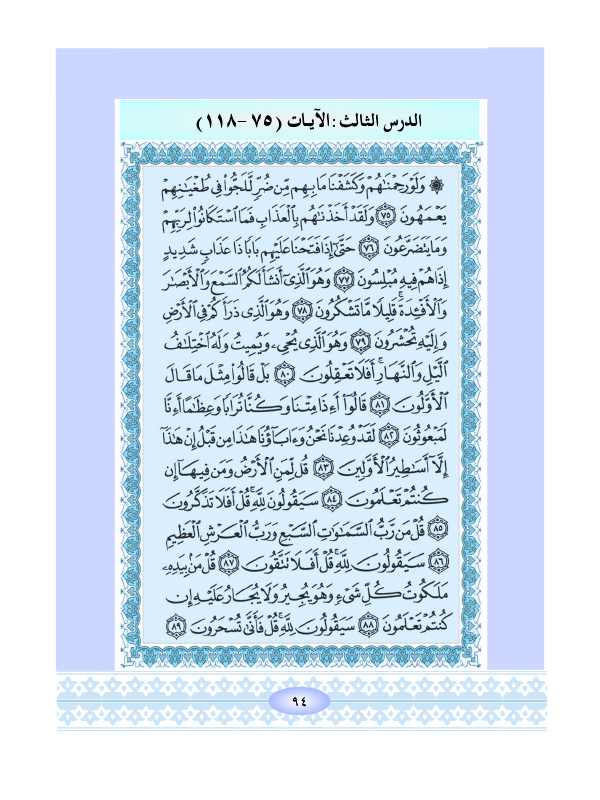 الدرس الثالث: الآيات (٧٥ -١١٨)
۞ وَلَوْ رَحِمْنَٰهُمْ وَكَشَفْنَا مَا بِهِم مِّن ضُرٍّ لَّلَجُّوا۟ فِى طُغْيَٰنِهِمْ
يَعْمَهُونَ ٧٥ وَلَقَدْ أَخَذْنَٰهُم بِٱلْعَذَابِ فَمَا ٱسْتَكَانُوا۟ لِرَبِّهِمْ
وَمَا يَتَضَرَّعُونَ ٧٦ حَتَّىٰٓ إِذَا فَتَحْنَا عَلَيْهِم بَابًا ذَا عَذَابٍ شَدِيدٍ
إِذَا هُمْ فِيهِ مُبْلِسُونَ ٧٧ وَهُوَ ٱلَّذِىٓ أَنشَأَ لَكُمُ ٱلسَّمْعَ وَٱلْأَبْصَٰرَ
وَٱلْأَفْـِٔدَةَ ۚ قَلِيلًا مَّا تَشْكُرُونَ ٧٨ وَهُوَ ٱلَّذِى ذَرَأَكُمْ فِى ٱلْأَرْضِ
وَإِلَيْهِ تُحْشَرُونَ ٧٩ وَهُوَ ٱلَّذِى يُحْىِۦ وَيُمِيتُ وَلَهُ ٱخْتِلَٰفُ
ٱلَّيْلِ وَٱلنَّهَارِ ۚ أَفَلَا تَعْقِلُونَ ٨٠ بَلْ قَالُوا۟ مِثْلَ مَا قَالَ
ٱلْأَوَّلُونَ ٨١ قَالُوٓا۟ أَءِذَا مِتْنَا وَكُنَّا تُرَابًا وَعِظَٰمًا أَءِنَّا
لَمَبْعُوثُونَ ٨٢ لَقَدْ وُعِدْنَا نَحْنُ وَءَابَآؤُنَا هَٰذَا مِن قَبْلُ إِنْ هَٰذَآ
إِلَّآ أَسَٰطِيرُ ٱلْأَوَّلِينَ ٨٣ قُل لِّمَنِ ٱلْأَرْضُ وَمَن فِيهَآ إِن
كُنتُمْ تَعْلَمُونَ ٨٤ سَيَقُولُونَ لِلَّهِ ۚ قُلْ أَفَلَا تَذَكَّرُونَ
٨٥ قُلْ مَن رَّبُّ ٱلسَّمَٰوَٰتِ ٱلسَّبْعِ وَرَبُّ ٱلْعَرْشِ ٱلْعَظِيمِ
٨٦ سَيَقُولُونَ لِلَّهِ ۚ قُلْ أَفَلَا تَتَّقُونَ ٨٧ قُلْ مَنۢ بِيَدِهِۦ
مَلَكُوتُ كُلِّ شَىْءٍ وَهُوَ يُجِيرُ وَلَا يُجَارُ عَلَيْهِ إِن
كُنتُمْ تَعْلَمُونَ ٨٨ سَيَقُولُونَ لِلَّهِ ۚ قُلْ فَأَنَّىٰ تُسْحَرُونَ ٨٩
٩٤